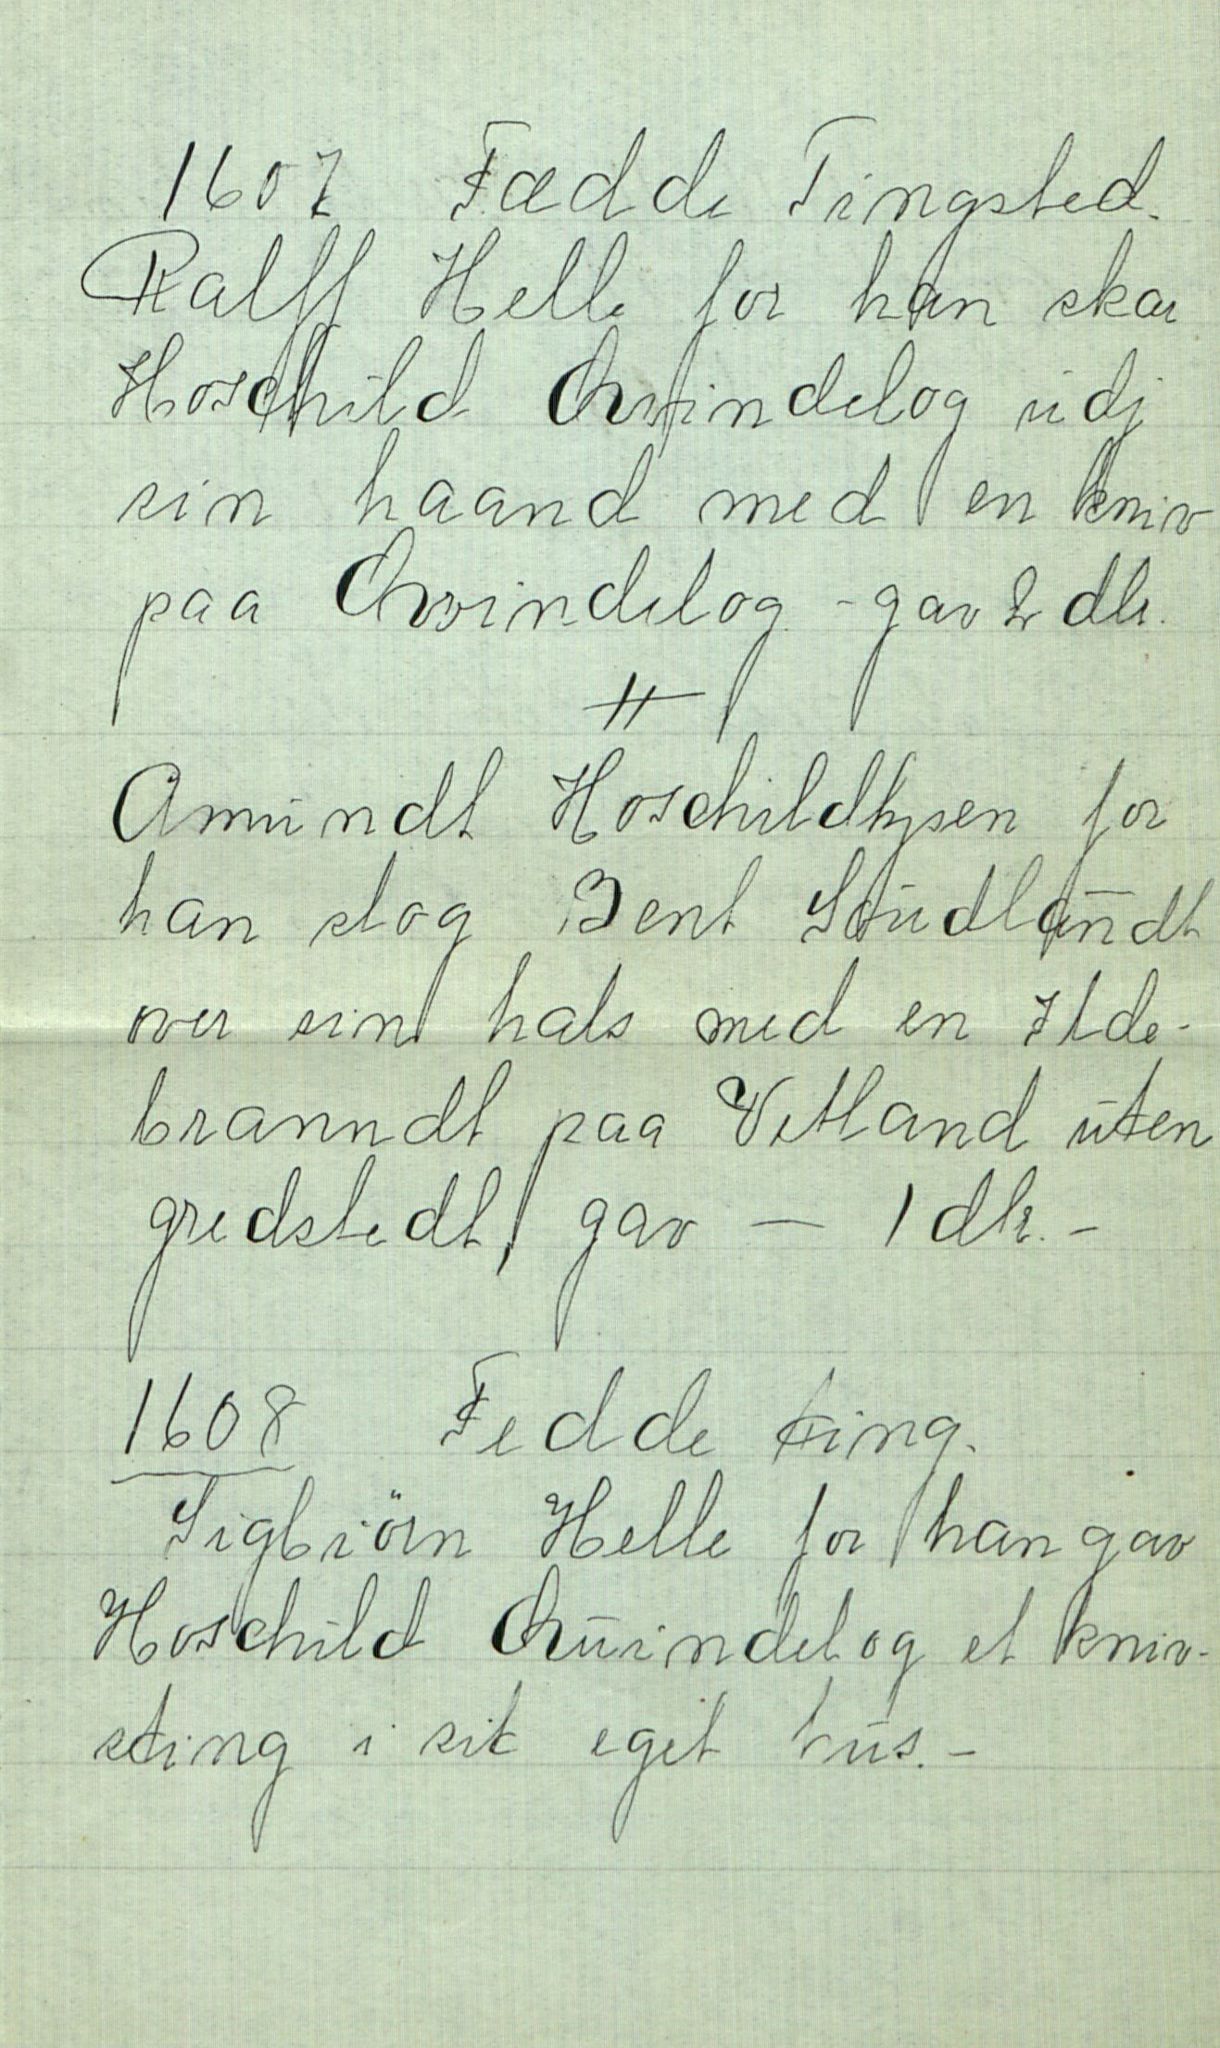 1607 Fædde Tingsted.
Ralff Helle for han skar
Hoschild Qvindelog udj
sin haand med en kniv
paa Qvindelog - gav 2 dlr.
#
Amundt Hoschildtzsen for
han slog Bent Studlandt
over sin hals med en Ilde-
branndt paa Vetland uten
gredstedt, gav — 1 dlr. -
1608 Fedde ting.
Sigbiörn Helle for han gav
Hoschild Quindelog et kniv-
sting i sit eget hus. -